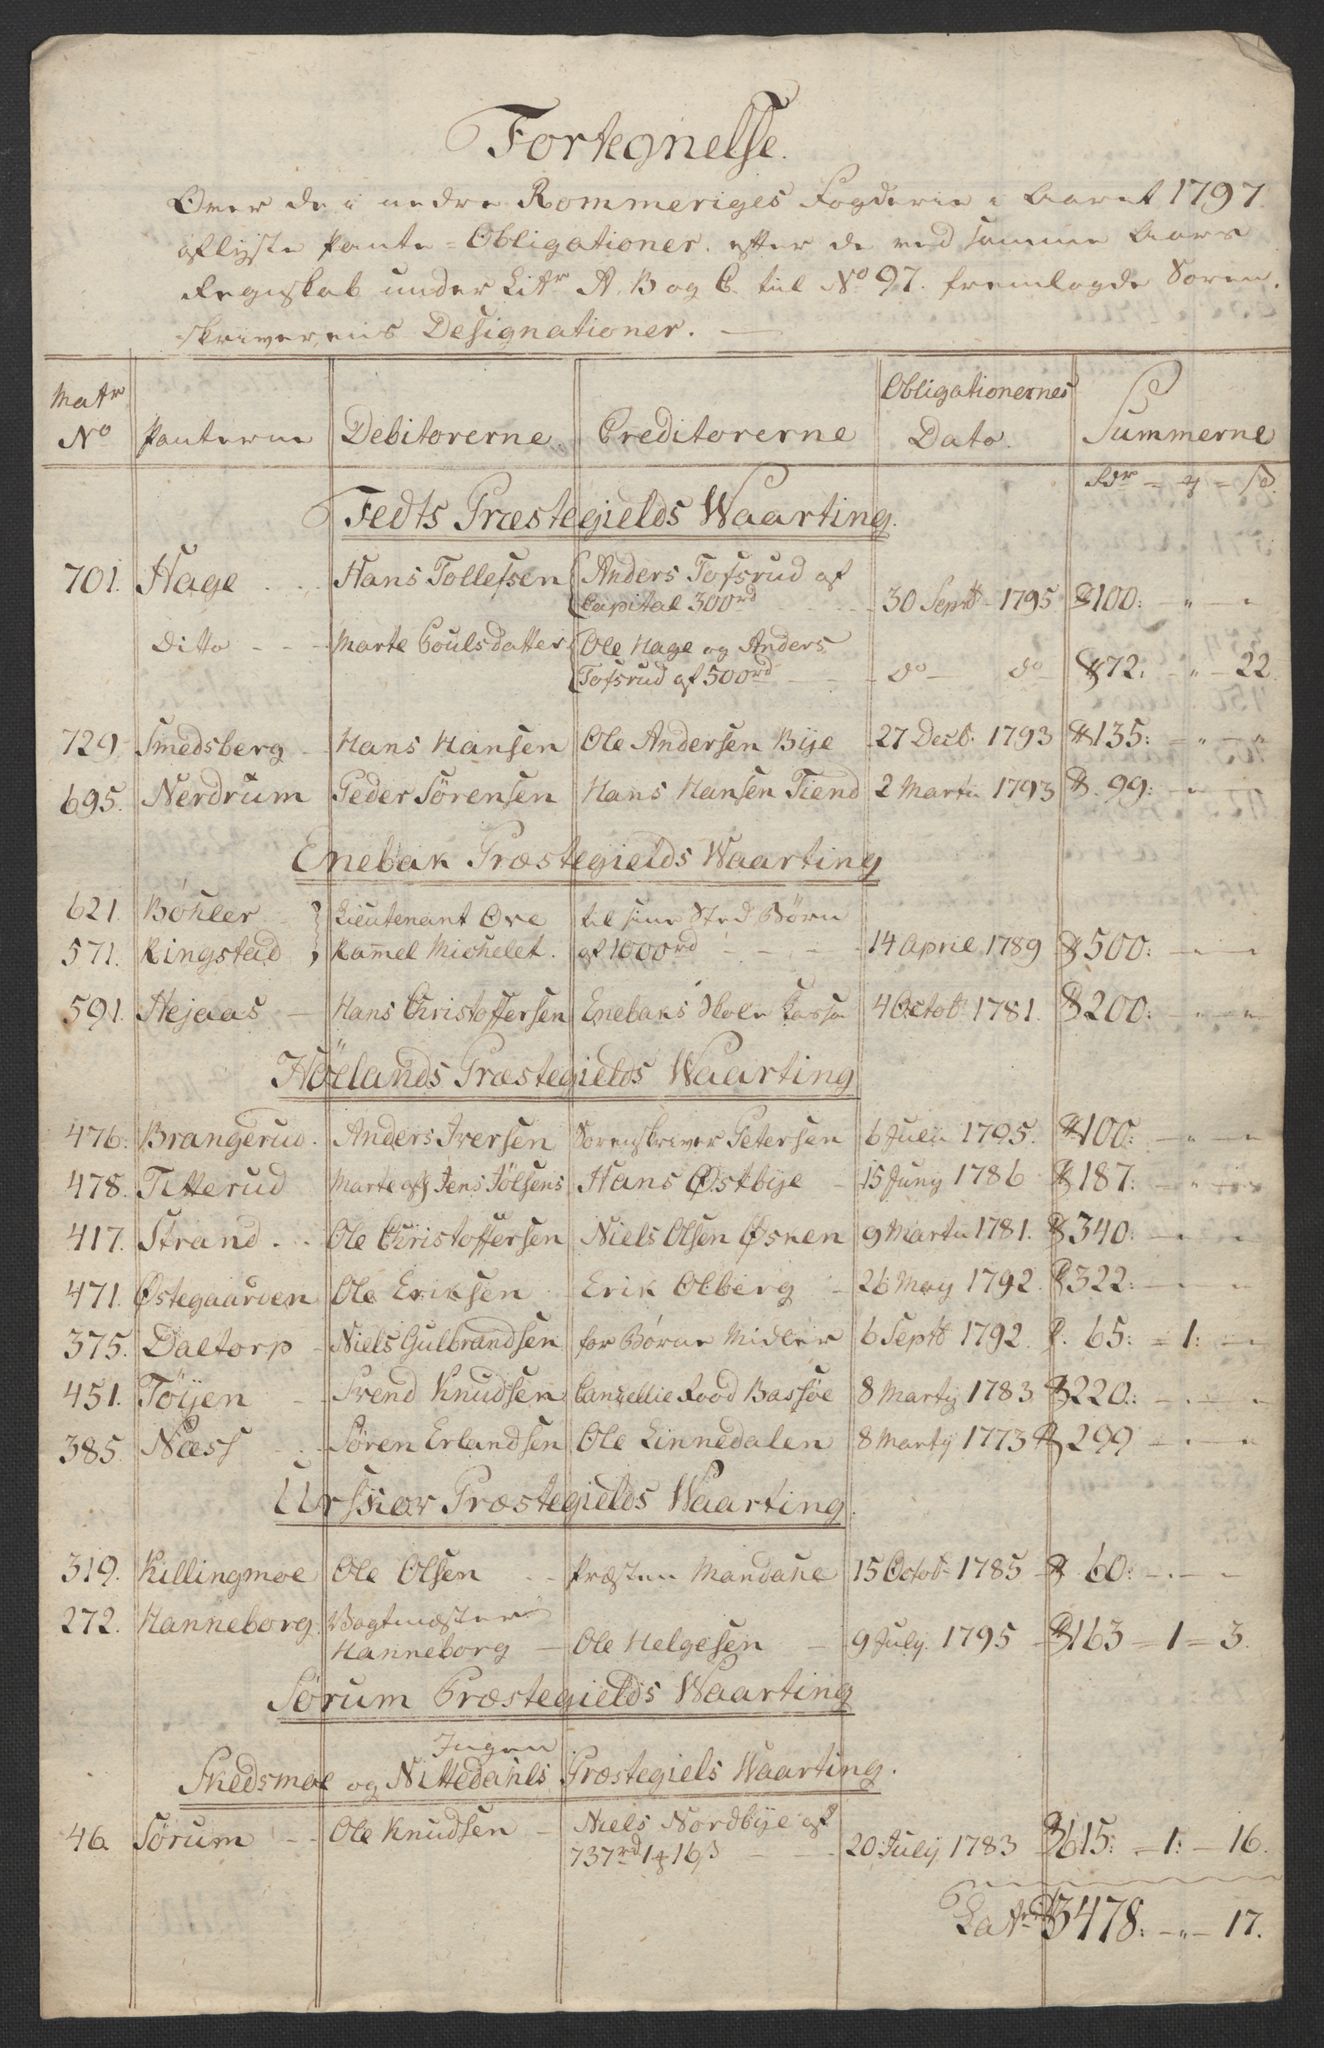 Fortegnelse.
Over de i nedre Rommeriges Fogderie i Aaret 1797.
aflyste Pante-Obligationer. efter de ved samme Aars
Regnskab under Litr A. B og C. til No 97. fremlagde Soren-
skriverens Designationer. —
Matr No | Panterne | Debitorerne | Creditorerne | Obligationernes Dato. | Summerne
Rdr - ꝶ - ß.
Fedts Præstegields Waarting.
701. Hage . . Hans Tollefsen Anders Tofsrud af
Capital 300rd - - - 30 Septb 1795 100: - " - "
ditto - - - Marte Poulsdatter Ole Hage og Anders
Tofsrud af 500rd - - do - do 72: - " - 22.
729. Smedsberg - Hans Hansen Ole Andersen Bye 27 Decb. 1793 135: - " - "
695. Nerdrum Peder Sørensen Hans Hansen Tiend 2 Martii 1793 99: - "
Enebak Præstegields Waarting
621. Bøhler - Lieutenant Ove til sine Sted Børn
571. Ringstad Kam̄el Michelet. af 1000rd - - - 14 April 1789 500: - " - "
591. Hejaas - Hans Christoffersen Enebaks Skole Kassa 4 Octob 1781. 200: - " - "
Høelands Præstegields Waarting
476. Brangerud. Anders Iversen Sorenskriver Petersen 6 Julii 1795. 100: - " - "
478. Titterud Marte afg Jens Jølsens Hans Østbye - 15 Juny 1786 187: - " - "
417. Strand . . Ole Christoffersen Niels Olsen Øsnen 9 Martii 1781. 340: - " - "
471. Østegaarden Ole Eriksen - Erik Olberg - 26 May 1792. 322: - " - "
375. Daltorp - Niels Gulbrandsen for Børne Midler 6 Septb 1792. 65: = 1: - "
451. Tøyen - - Svend Knudsen Cancellie Raad Bassøe 8 Marty 1783 220: - " - "
385. Næss . . Søren Erlandsen Ole Linnedalen 8 Marty 1773 299 - " - "
Urskor Præstegields Waarting.
319. Killingmoe Ole Olsen - - Præsten Mandahl 15 Octob 1785 60: - " - "
272. Hanneborg. Vagtmester
Hanneborg - Ole Helgesen - 9 July. 1795 163 = 1 = 3.
Sørum Præstegields Waarting
Ingen
Skedsmoe og Nittedahls Præstegiels Waarting.
46. Sørum - - Ole Knudsen - Niels Nordbye af
737rd 1 ꝶ 16 ß - - - 20 July 1783 615: = 1: - 16.
Latr 3478: - " - 17.